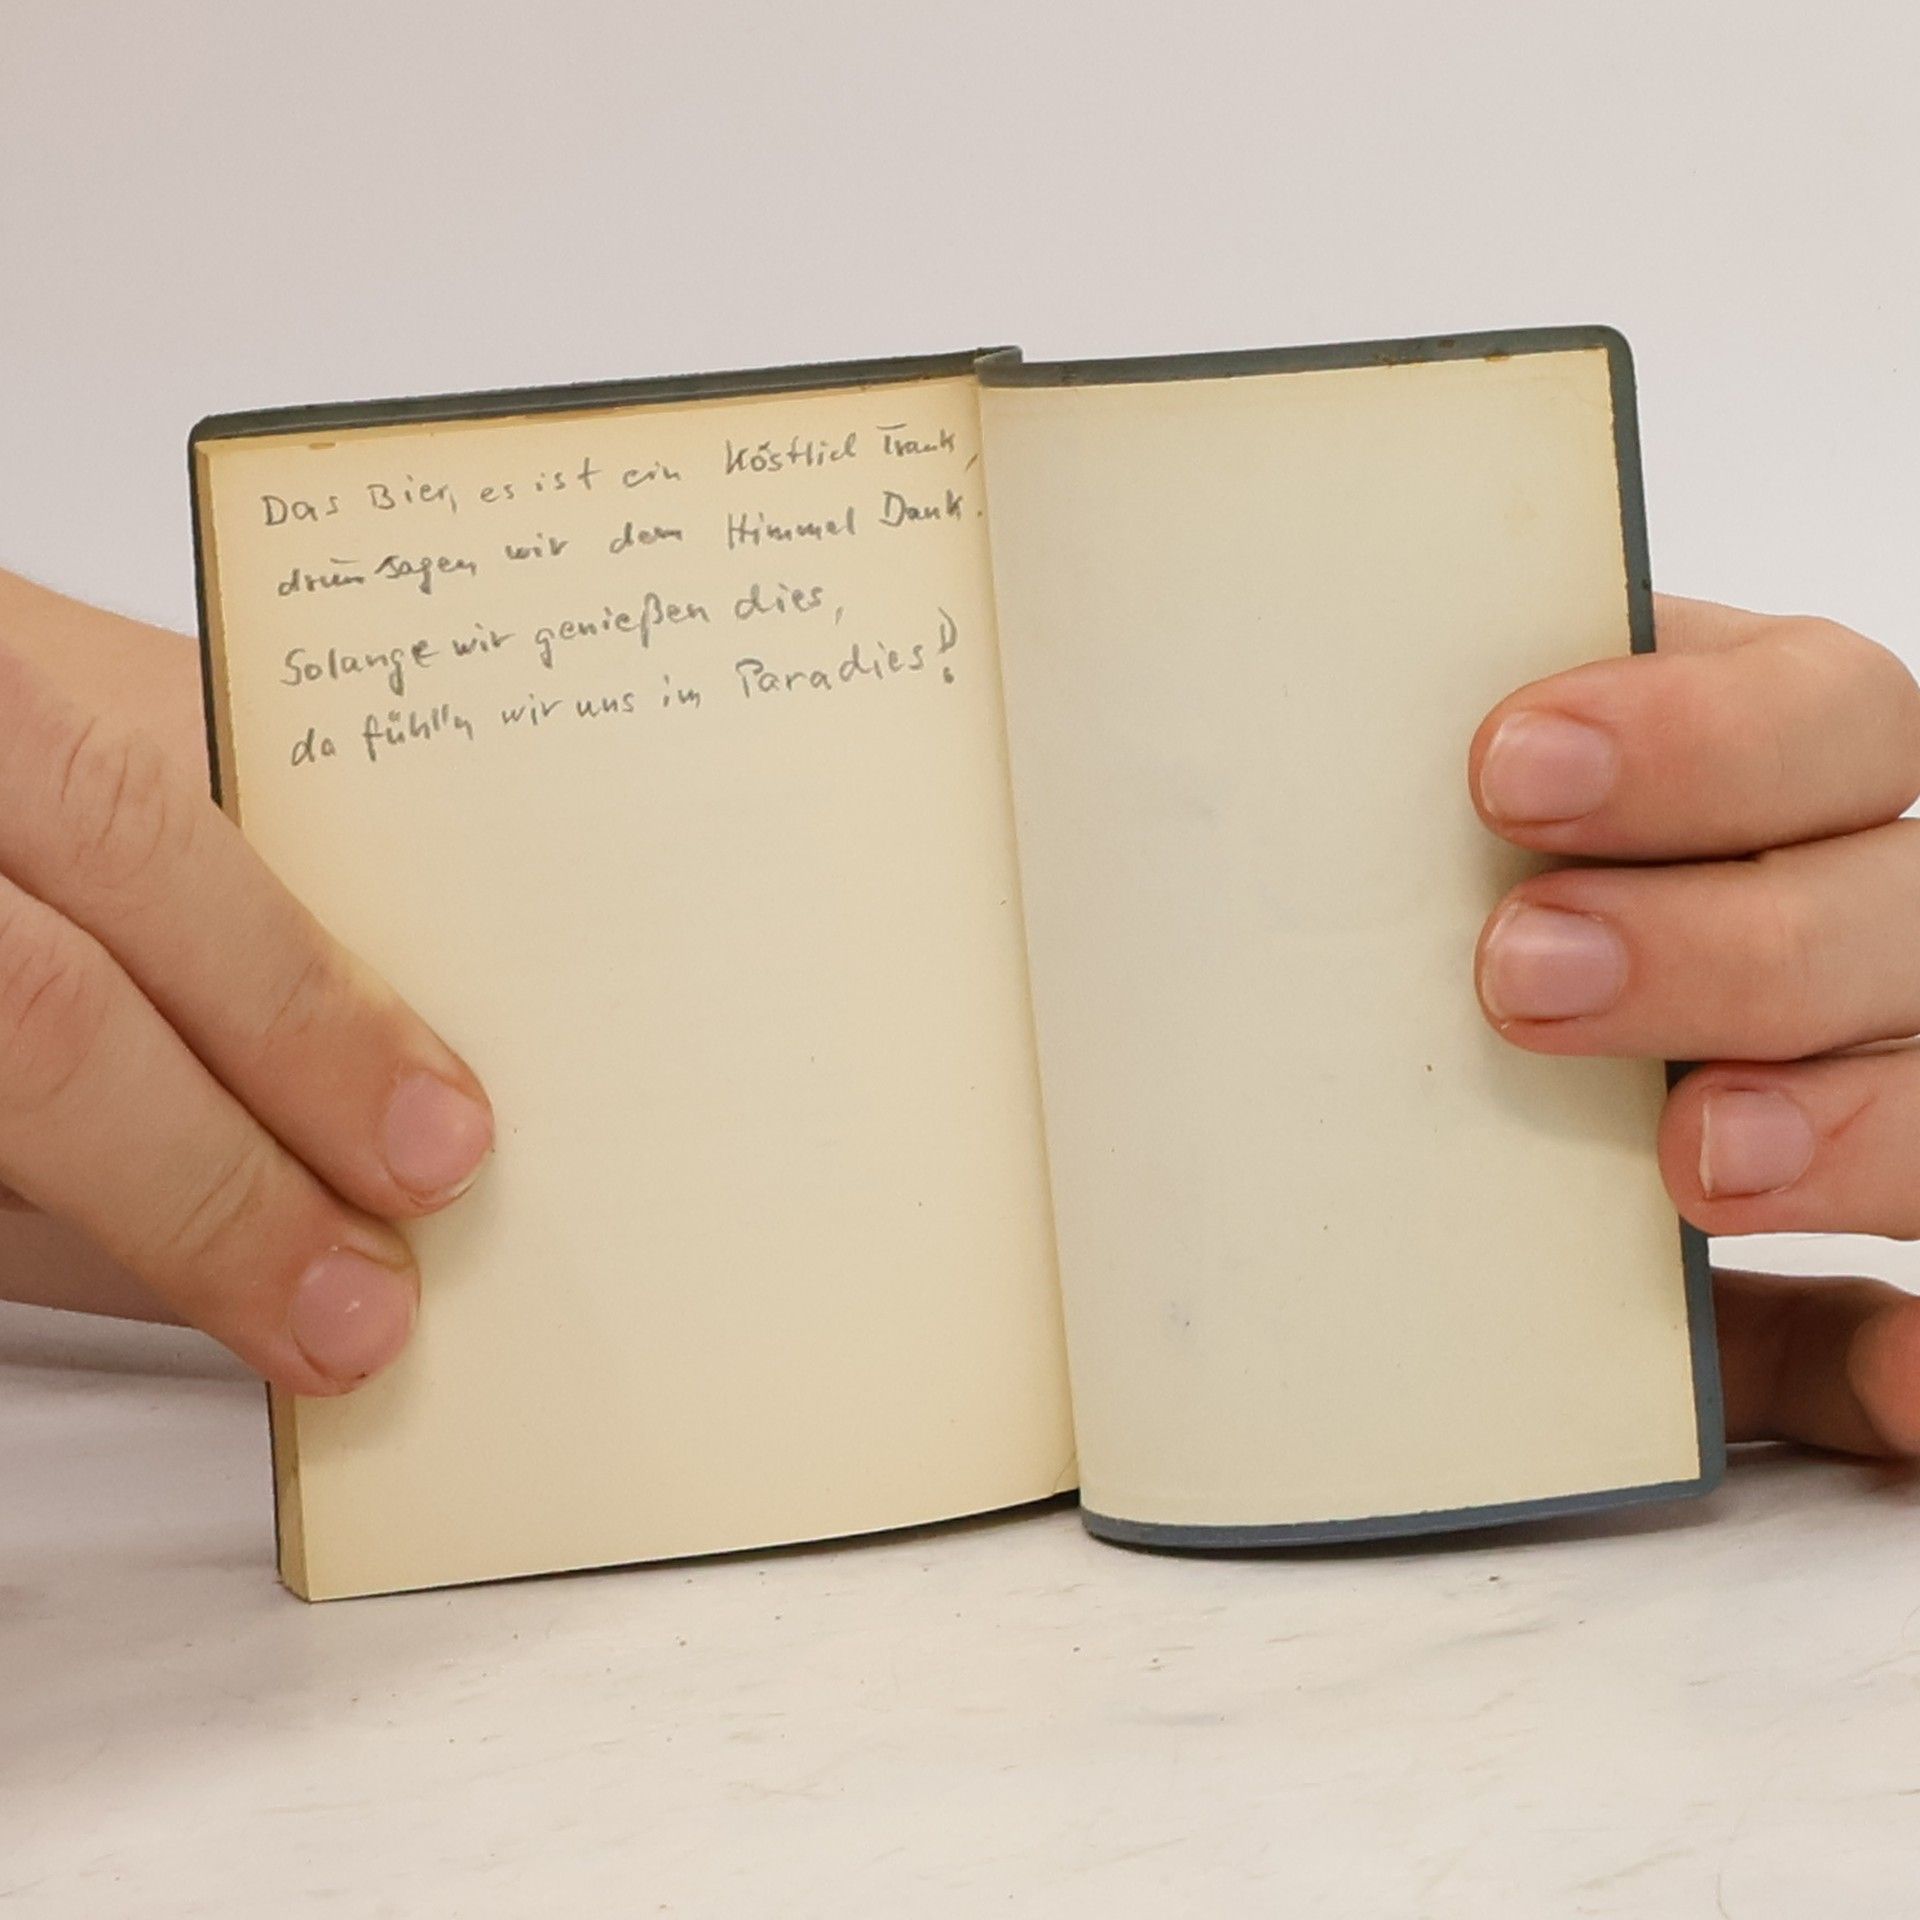 Das Bier, es ist ein köstlich Trank,
drum sagen wir dem Himmel Dank.
Solange wir genießen dies,
da fühl'n wir uns im Paradies!